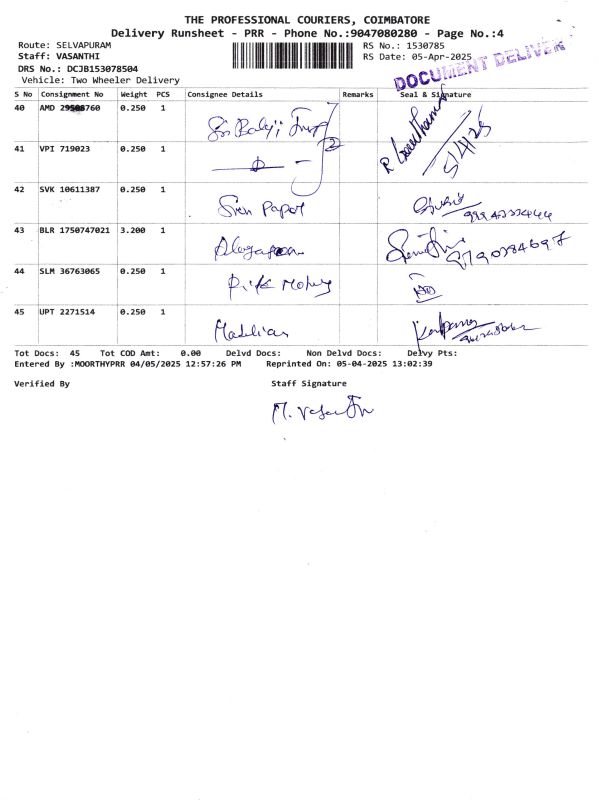 THE PROFESSIONAL COURIERS, COIMBATORE
Delivery Runsheet - PRR - Phone No.:9047080280 - Page No.:4
Route: SELVAPURAM
RS No.: 1530785
Staff: VASANTHI
RS Date: 05-Apr-2025
DRS No.: DCJB153078504
Vehicle: Two Wheeler Delivery
DOCUMENT DELIVER
S No Consignment No Weight PCS Consignee Details Remarks Seal & Signature
40 AMD 0.250 1 Sri Balaji
5/4/25
41 VPI 719023 0.250 1
42 SVK 10611387 0.250 1 Siva Paper
43 BLR 1750747021 3.200 1
44 SLM 36763065 0.250 1
45 UPT 2271514 0.250 1
Tot Docs: 45 Tot COD Amt: 0.00 Delvd Docs: Non Delvd Docs: Delvy Pts:
Entered By :MOORTHYPRR 04/05/2025 12:57:26 PM Reprinted On: 05-04-2025 13:02:39
Verified By Staff Signature